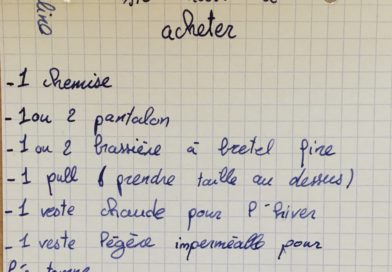 acheter
- 1 chemise
- 1 ou 2 pantalon
- 1 ou 2 brassière à bretel fine
- 1 pull ( prendre taille au dessus )
- 1 veste chaude pour l'hiver
- 1 veste légère imperméable pour